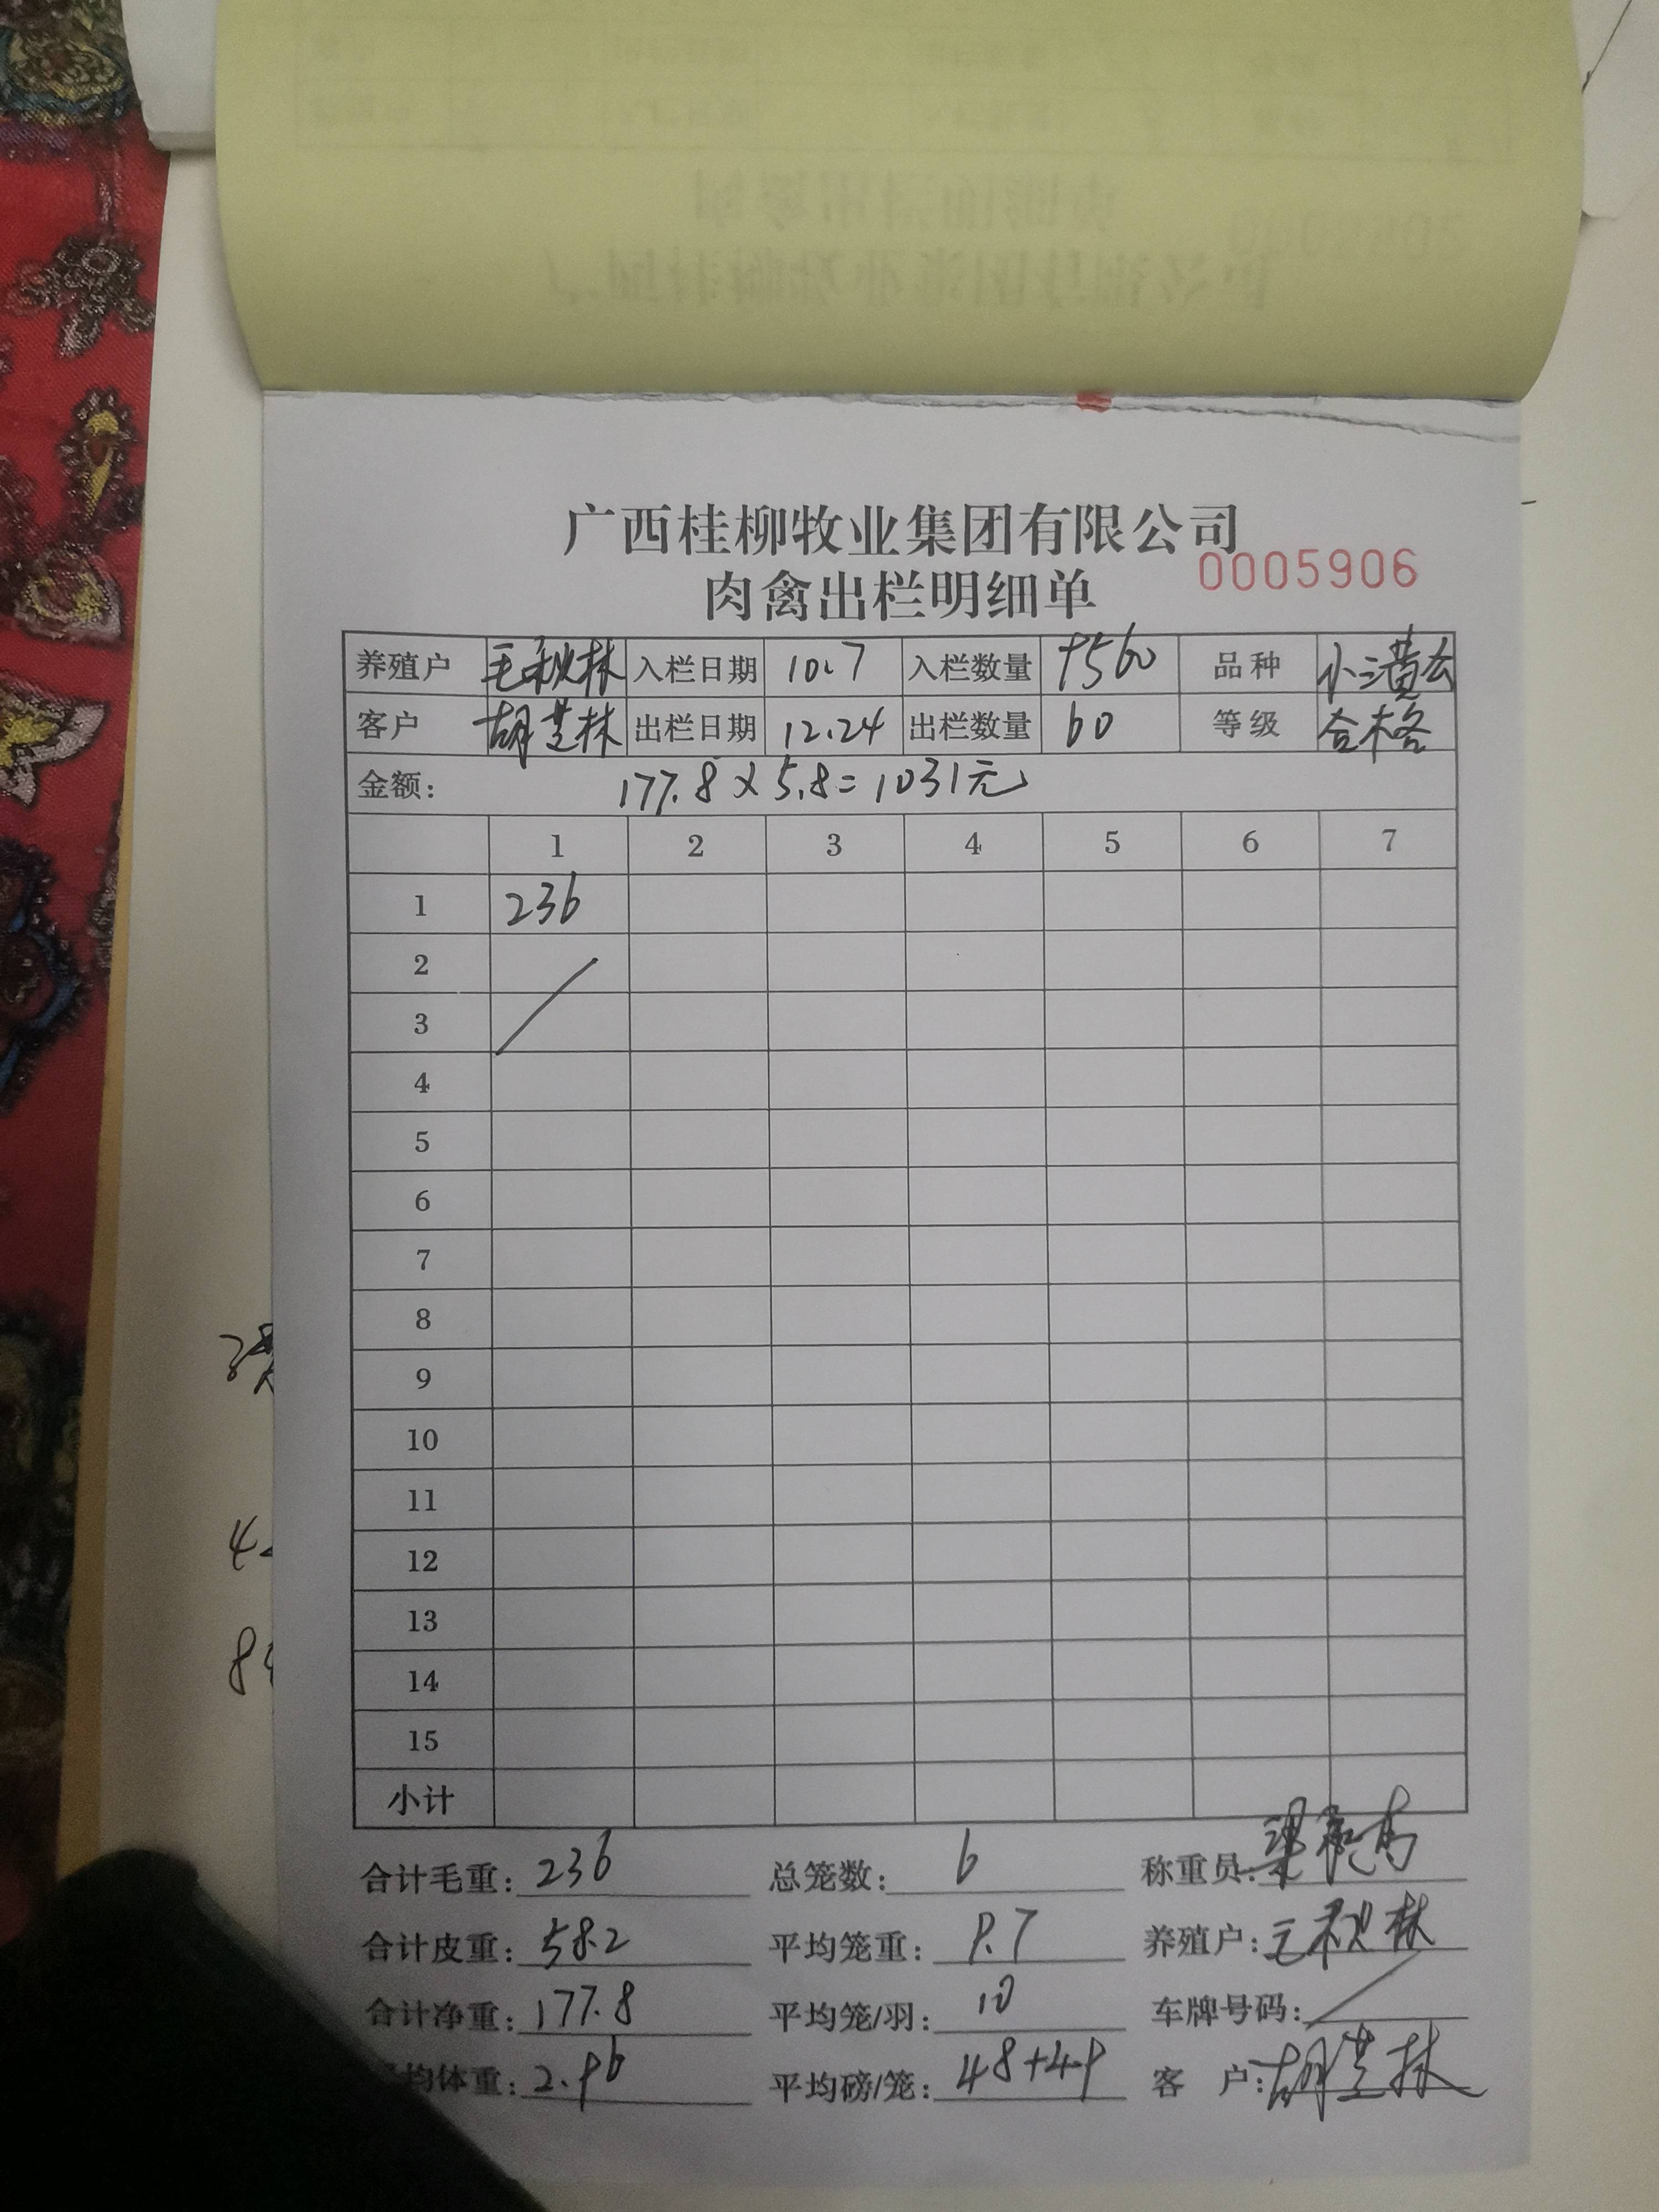 广西桂柳牧业集团有限公司
肉禽出栏明细单 0005906
养殖户 毛秋林 入栏日期 10.7 入栏数量 9560 品种 小三黄公
客户 胡芝林 出栏日期 12.24 出栏数量 60 等级 合格
金额: 177.8×5.8=1031元
1 2 3 4 5 6 7
1 236
2
3
4
5
6
7
8
9
10
11
12
13
14
15
小计
合计毛重: 236 总笼数: 6 称重员:
合计皮重: 58.2 平均笼重: 9.7 养殖户: 毛秋林
合计净重: 177.8 平均笼/羽: 10 车牌号码:
均体重: 2.96 平均磅/笼: 48+49 客 户: 胡芝林